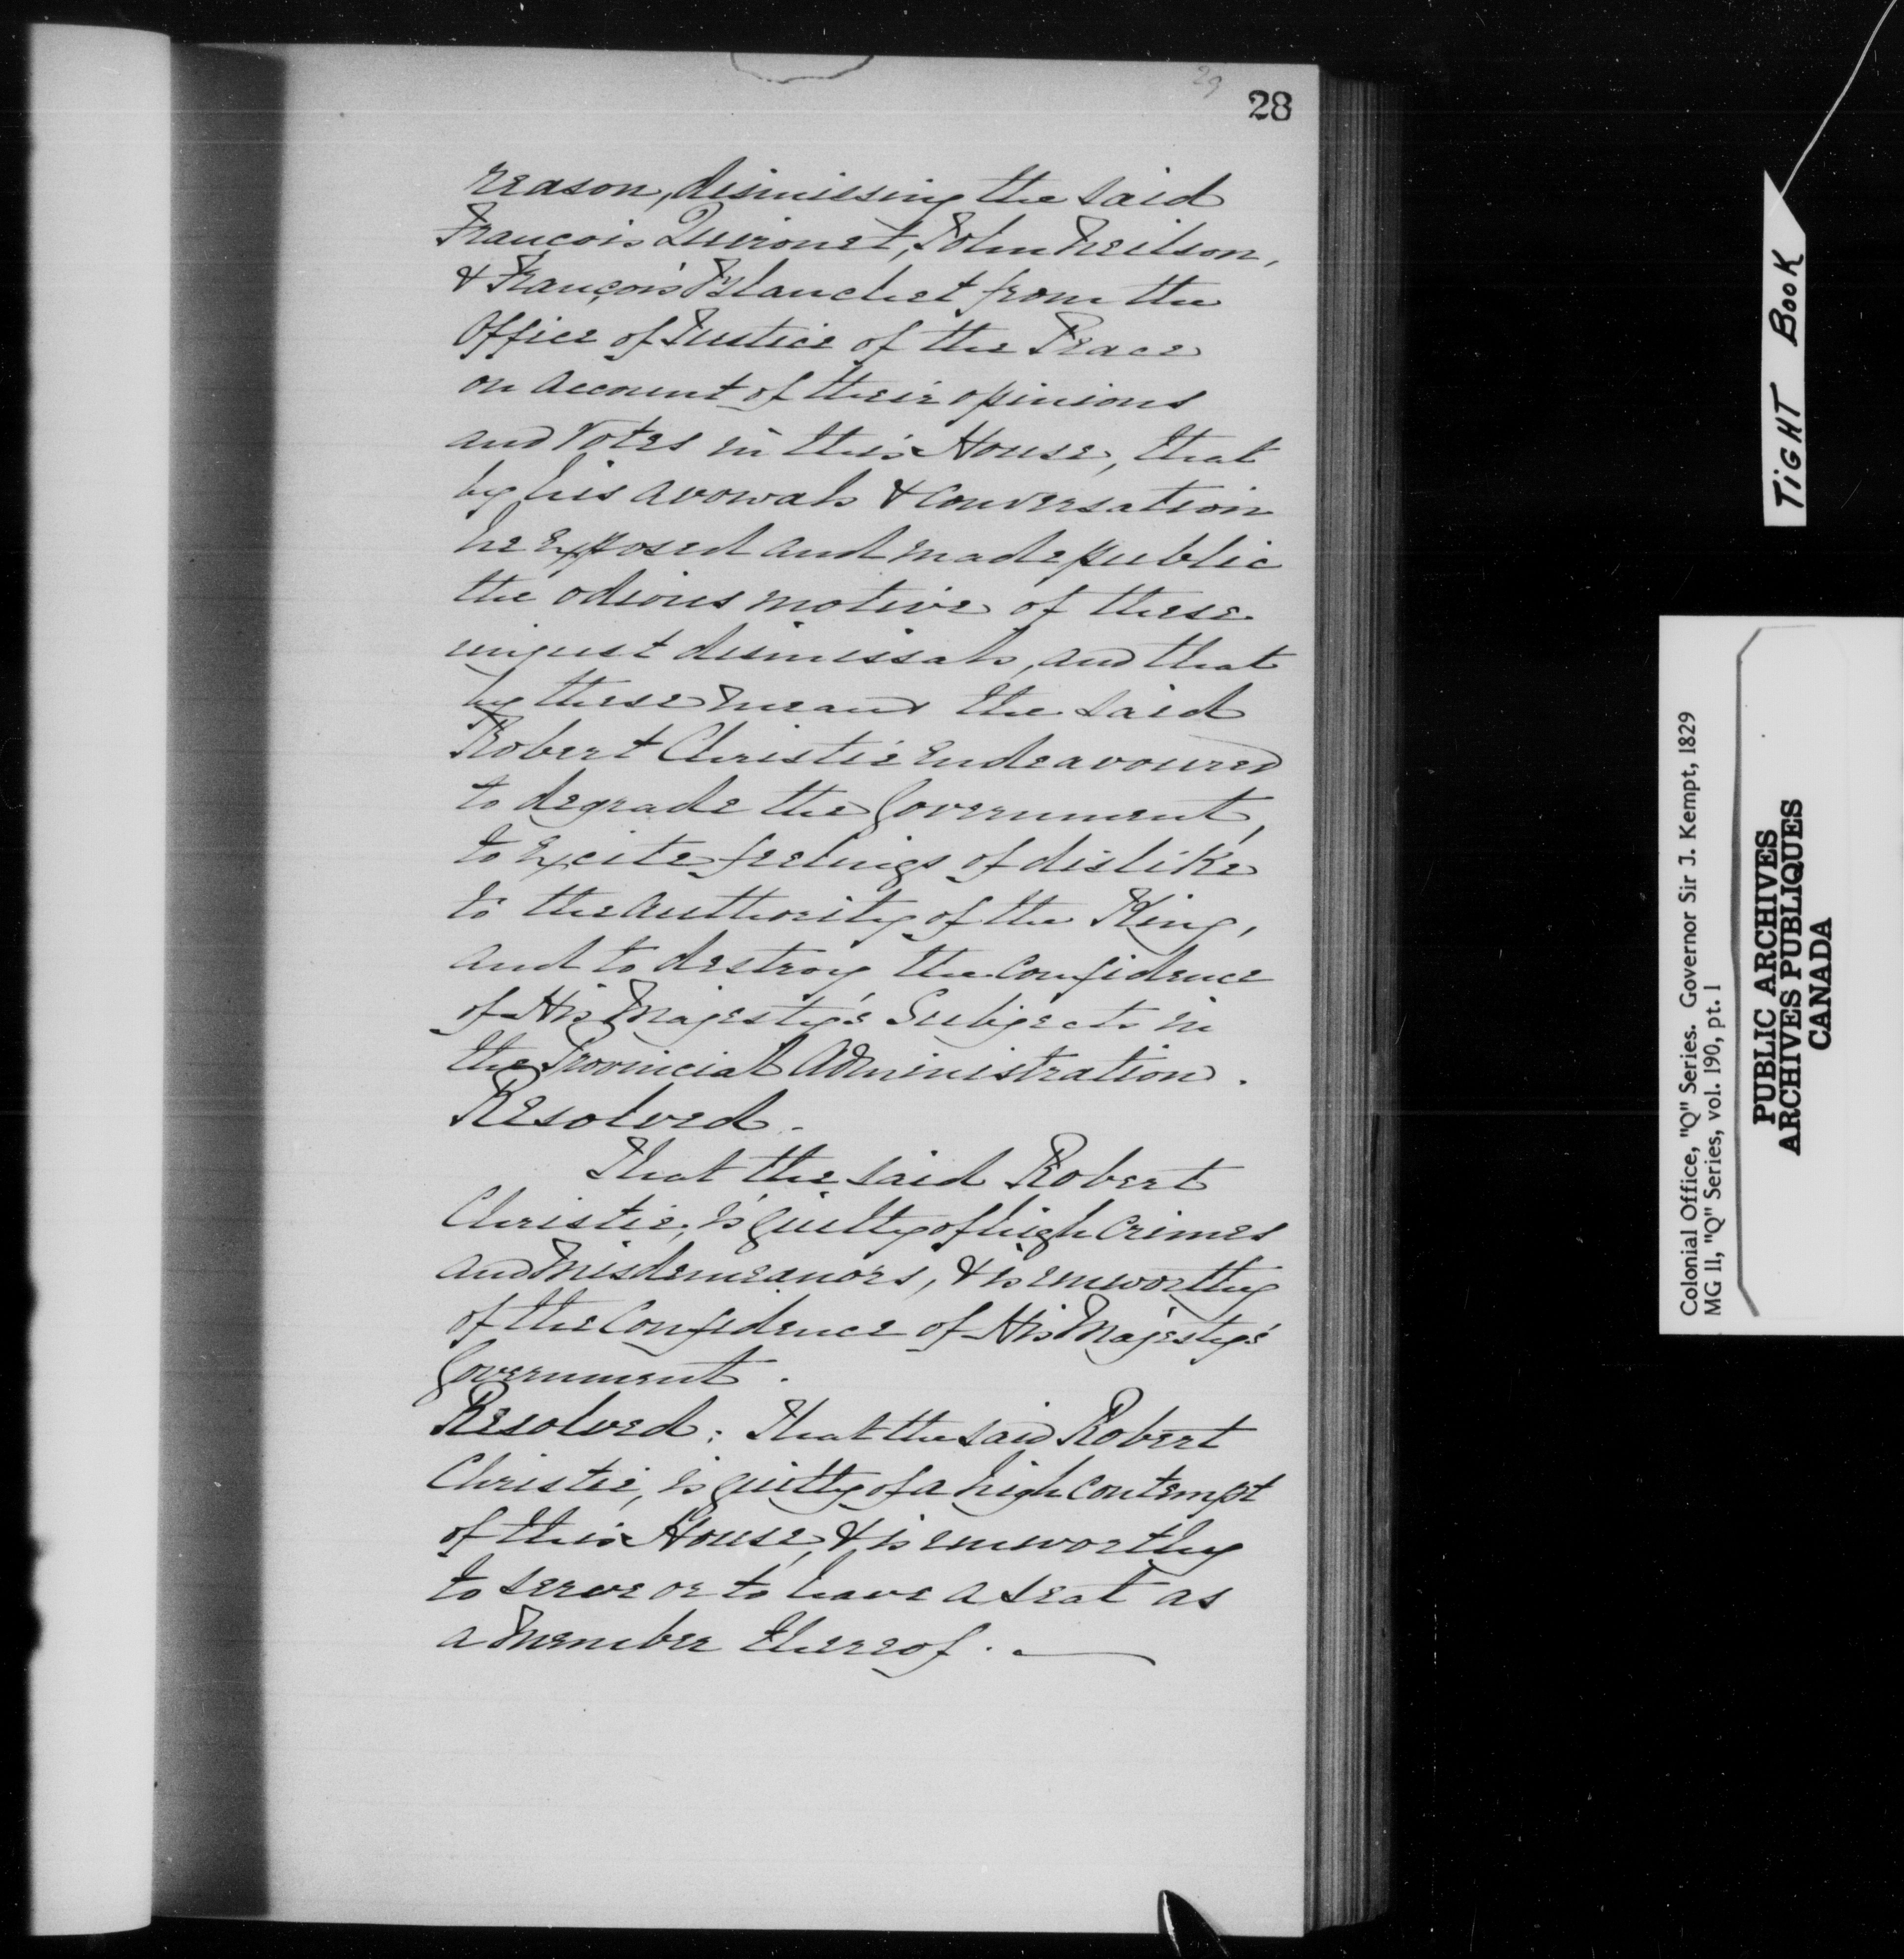 29
28
reason, dismissing the said
Francois Quirouet, John Neilson,
& François Blanchet from the
Office of Justice of the Peace
on account of their opinions
and Votes in this House, that
by his avowals & conversation
he exposed and made public
the odious motive of these
unjust dismissals, and that
by these means the said
Robert Christie endeavoured
to degrade the Government,
to excite feelings of dislike
to the authority of the King,
and to destroy the confidence
of His Majesty's Subjects in
the Provincial Administration.
Resolved.
That the said Robert
Christie, is guilty of high crimes
and Misdemeanors, & is unworthy
of the Confidence of His Majesty's
Government.
Resolved: That the said Robert
Christie, is guilty of a high contempt
of this House, & is unworthy
to serve or to have a seat as
a Member thereof. —
TIGHT BOOK
Colonial Office, "Q" Series. Governor Sir J. Kempt, 1829
MG 11, "Q" Series, vol. 190, pt. 1
PUBLIC ARCHIVES
ARCHIVES PUBLIQUES
CANADA